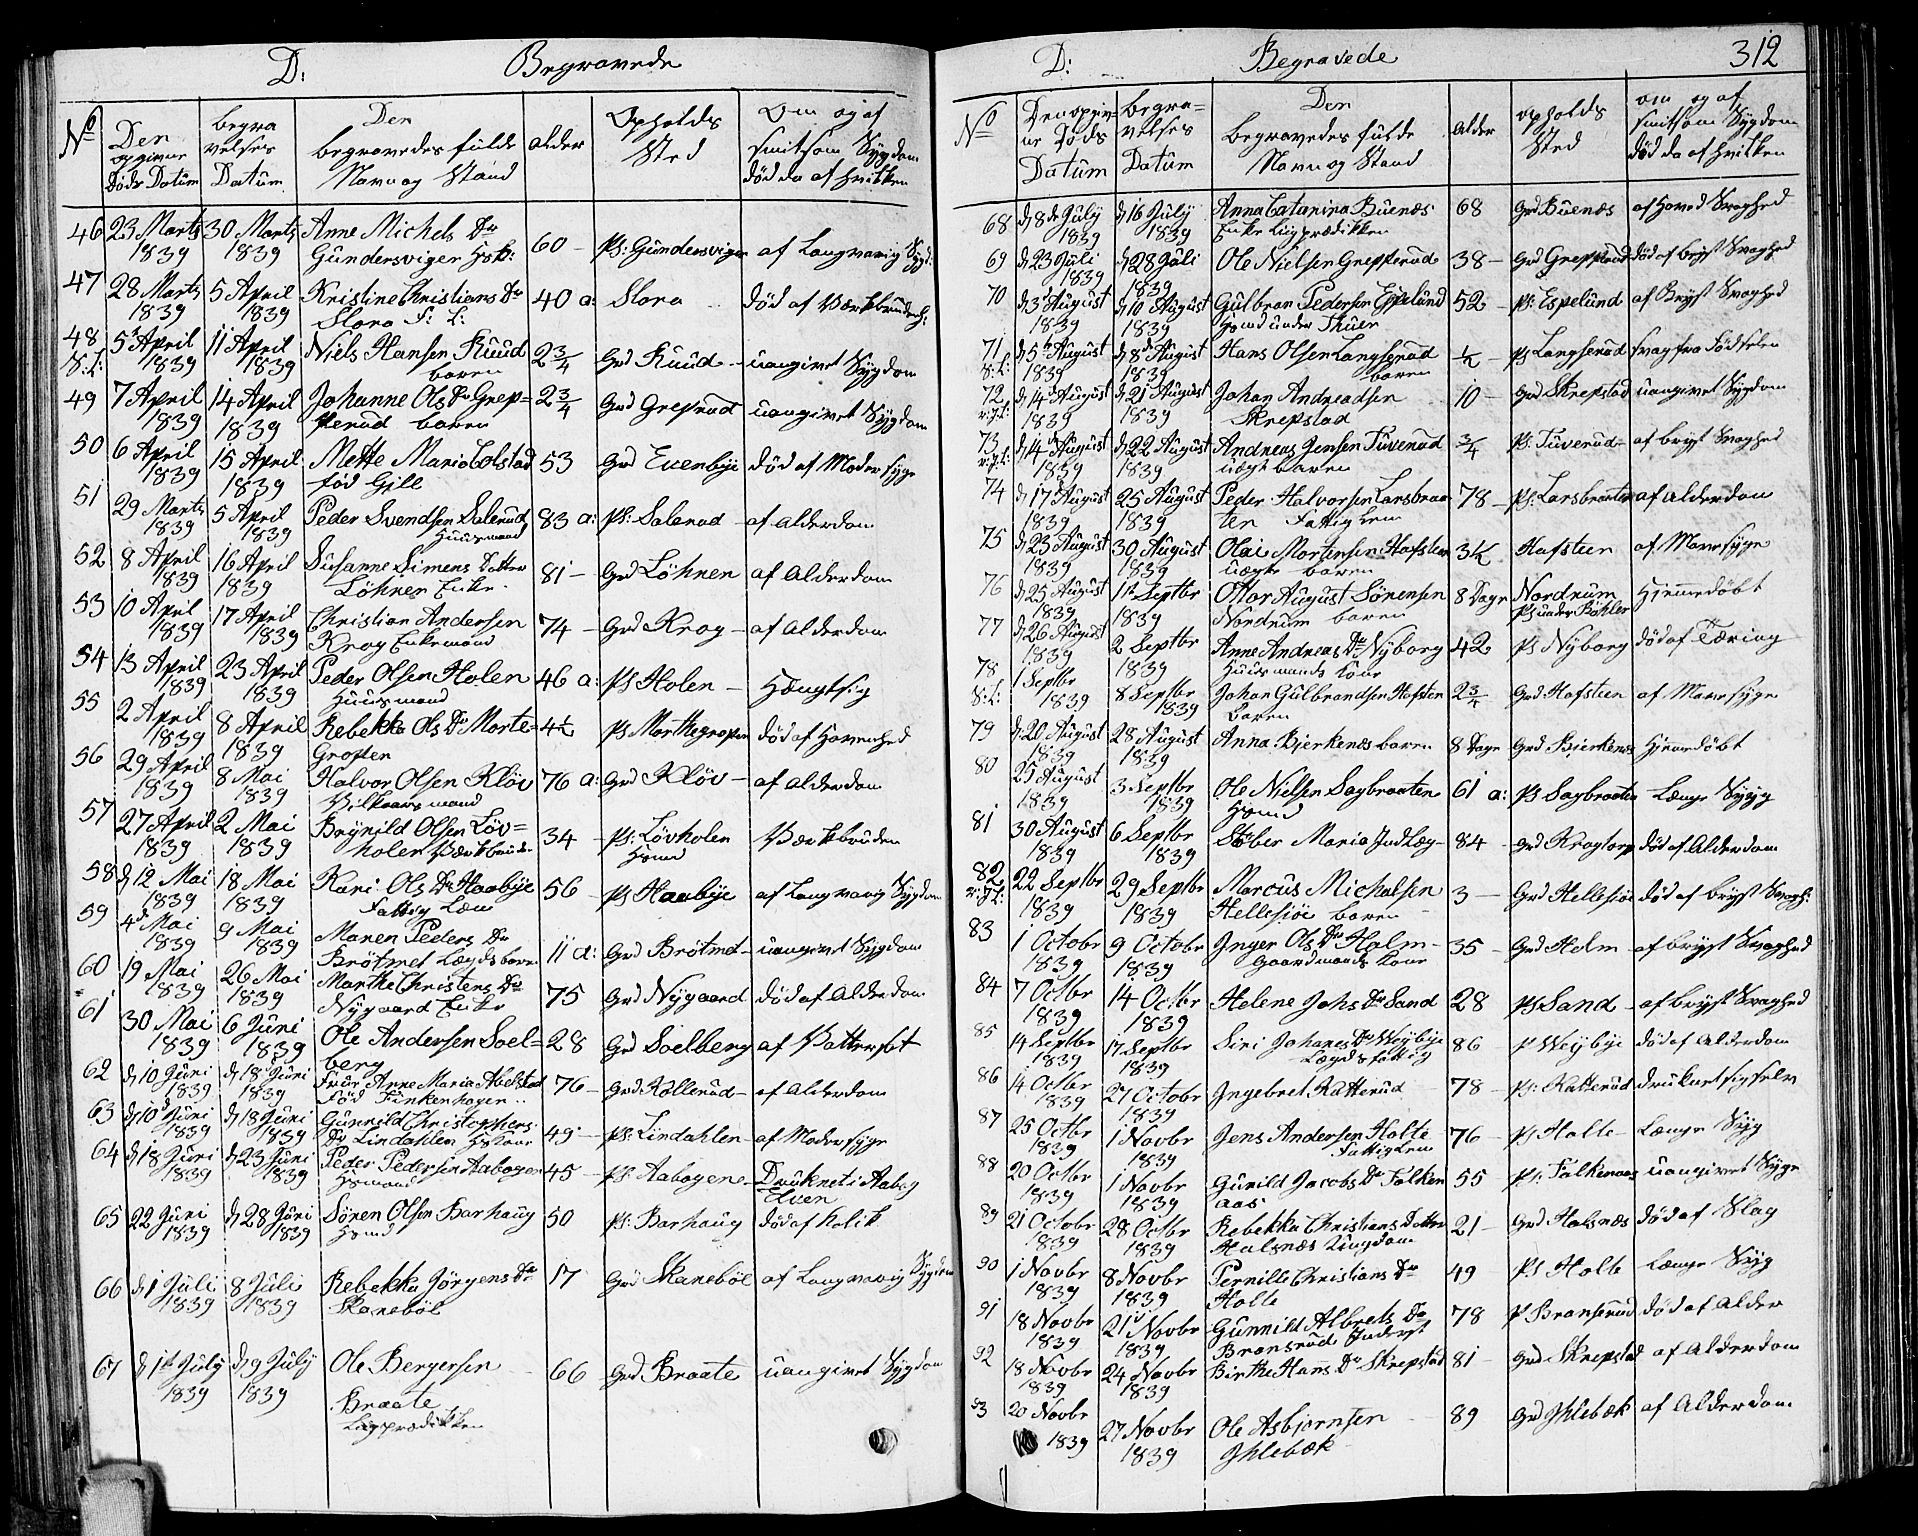 D: Begravede
No Den opgivne Døds Datum | begravelses Datum | Den begravedes fulde Navn og Stand | alder | Opholds Sted | Om og af smitsom Sygdom død da af hvilken
46 23 Marts 1839 30 Marts 1839 Anne Michels Dr Gundersviger 60 - Ps: Gundersviger af Langvarig Sygd:
47 28 Marts 1839 5 April 1839 Kristine Christians Dr Slora F: L: 40 a: Slora død af
48 S:L: 5 April 1839 11 April 1839 Niels Hansen Ruud baren 2 3/4 Grd Ruud - uangivet Sygdom
49 7 April 1839 14 April 1839 Johanne Ols Dr Grepperud baren 2 3/4 Grd Greprud uangivet Sygdom
50 6 April 1839 15 April 1839 Mette Maria Colstad fød Gill 53 Grd Euenbye død af Moder syge
51 29 Marts 1839 5 April 1839 Peder Svendsen Salerud Huusmand 83 a: Ps: Salerud - af Alderdom
52 8 April 1839 16 April 1839 Susanne Simens Datter Løhnen Enke 81 - Grd Løhnen af Alderdom
53 10 April 1839 17 April 1839 Christian Andersen Krog Enkemand 74 - Grd Krog - af Alderdom
54 13 April 1839 23 April 1839 Peder Olsen Holen Huusmand 46 a: Ps Holen - Hængt sig
55 2 April 1839 8 April 1839 Rebekka Ols Dr Morte= Gropen 4 1/2 Ps Morthegropen død af
56 29 April 1839 8 Mai 1839 Halvor Olsen Kløv 76 a: Grd Kløv - af Alderdom
57 27 April 1839 2 Mai 1839 Brynild Olsen Løv= holen 34 - Ps: Løvholen Hsmd
58 d 12 Mai 1839 18 Mai 1839 Kari Ols Dr Haabye Fattig Lem 56 - Ps Haabye af Langvarig Sygdom
59 4 Mai 1839 9 Mai 1839 Maren Peders Dr Brøtmet Lægdsbarn 11 a: Grd Brøtmet - uangivet Sygdom
60 19 Mai 1839 26 Mai 1839 Marthe Christens Dr Nygaard Enke 75 Grd Nygaard død af Alderdom
61 30 Mai 1839 6 Juni 1839 Ole Andersen Soel= berg 28 Grd Soelberg af Vattersot
62 d 10 Juni 1839 d 18 Juni 1839 Frue Anne Maria Abelsted Fød Finkenhagen 76 - Grd Kollerud - af Alderdom
63 d 10 Juni 1839 d 18 Juni 1839 Gunnild Christophers Dr Lindahlen 49 - Ps: Lindahlen - af Moder syge
64 d 18 Juni 1839 d 23 Juni 1839 Peder Pedersen Aabogen Hsmand 45 - Ps Aabogene - Druknet i Aabog Elven
65 22 Juni 1839 d 28 Juni 1839 Søren Olsen Barhaug Hsmd 50 Ps: Barhaug død af Kolik
66 d 1 Juli 1839 8 Juli 1839 Rebekka Jørgens Dr Skanebøl 17 Grd Skanebøl af Langvarig Sygdom
67 d 1 July 1839 d 9 July 1839 Ole Bergersen Braate Liigprædikken 66 Grd Braate uangivet Sygdom
D: Begravede 312
No Den opgivne Døds Datum | begravelses Datum | Den begravedes fulde Navn og Stand | alder | opholds Sted | om og af smitsom Sygdom død da af hvilken
68 d 8 July 1839 d 16 July 1839 Anna Catarina Buenæs Enke Liigprædikken 68 Grd Buenæs af Hoved Svaghed
69 d 23 Juli 1839 d 28 Juli 1839 Ole Nielsen Grepperud 38 - Grd Grepperud død af bryst Svaghed
70 d 3 August 1839 d 10 August 1839 Gulbran Pedersen Espelund Hsmd under Thuer 52 - Ps: Espelund af Bryst Svaghed
71 S:L: d 5 August 1839 d 8 August 1839 Hans Olsen Langserud baren 1/2 - Ps Langserud svag fra Fødselen
72 d 14 August 1839 d 21 August 1839 Johan Andreadsen Skrepstad 10 - Grd Skrepstad uangivet Sygdom
73 d 14 August 1839 d 22 August 1839 Andreas Jensen Tuverud uægt baren 3/4 Ps: Tuverud - af bryst Svaghed
74 d 17 August 1839 25 August 1839 Peder Halvorsen Larsbraa ten Fattig Lem 78 - Ps: Larsbraaten af Alderdom
75 d 23 August 1839 30 August 1839 Olai Mortensen Hafsteen uægte baren 3 1/2 Hafsteen af Mavesyge
76 d 25 August 1839 1 Septbr 1839 Ottor August Sørensen Nordrum baren 8 Dage Nordrum Ps under Bøhler Hiemmedøbt
77 d 26 August 1839 2 Septbr 1839 Anne Andreas Dr Nyborg Huusmands Kone 42 Ps Nyborg død af Tæring
78 S:L: 1 Septbr 1839 8 Septbr 1839 Johan Gulbrandsen Hafsten baren 2 3/4 Grd Hafsteen af Mavesyge
79 d 20 August 1839 28 August 1839 Anna Bjerkenæs baren 8 Dage Grd Bierkenæs Hiemmedøbt
80 25 August 1839 3 Septbr 1839 Ole Nielsen Sagbraaten Hsmd 61 a: Ps Sagbraaten - Længe Syg
81 30 August 1839 6 Septbr 1839 Maria 84 - Grd Krogtorp død af Alderdom
82 22 Septbr 1839 29 Septbr 1839 Marcus Michelsen Hellesiøe baren 3 - Grd Hellesiøe død af bryst Svagh:
83 1 Octobr 1839 9 Octobr 1839 Inger Ols Dr Holm - Gaardmands Kone 35 - Grd Holm - af bryst Svaghed
84 7 Octbr 1839 14 Octbr 1839 Helene Johs Dr Sand 28 Ps Sand - af bryst Svaghed
85 14 Septbr 1839 17 Septbr 1839 Siri Johanes Dr Weybye Lægdsfattig 86 Ps Weybye død af Alderdom
86 4 Octbr 1839 27 Octobr 1839 Ingebret Katterud 78 - Ps: Katterud druknet sig selv
87 25 Octbr 1839 1 Novbr 1839 Jens Andersen Holte Fattig Lem 76 - Ps Holte - Længe Syg
88 20 Octbr 1839 1 Novbr 1839 Gunild Jacobs Dr Falken aas 55 Ps: Falkenaas uangivet Syge
89 21 Octobr 1839 28 Octbr 1839 Rebekka Christians Datter Halsnæs Ungdom 21 - Grd Halsnæs død af Slag
90 1 Novbr 1839 8 Novbr 1839 Pernille Christians Dr Holte 49 - Ps Holte Længe Syg
91 18 Novbr 1839 21 Novbr 1839 Gunnild Albrets Dr Bransrud Inderst 78 P Branserud død af Alder
92 18 Novbr 1839 24 Novbr 1839 Birthe Hans Dr Skrepstad 81 - Grd Skrepstad af Alderdom
93 20 Novbr 1839 27 Novbr 1839 Ole Asbjørnsen Ihlebæk 89 Grd Ihlebæk af Alderdom